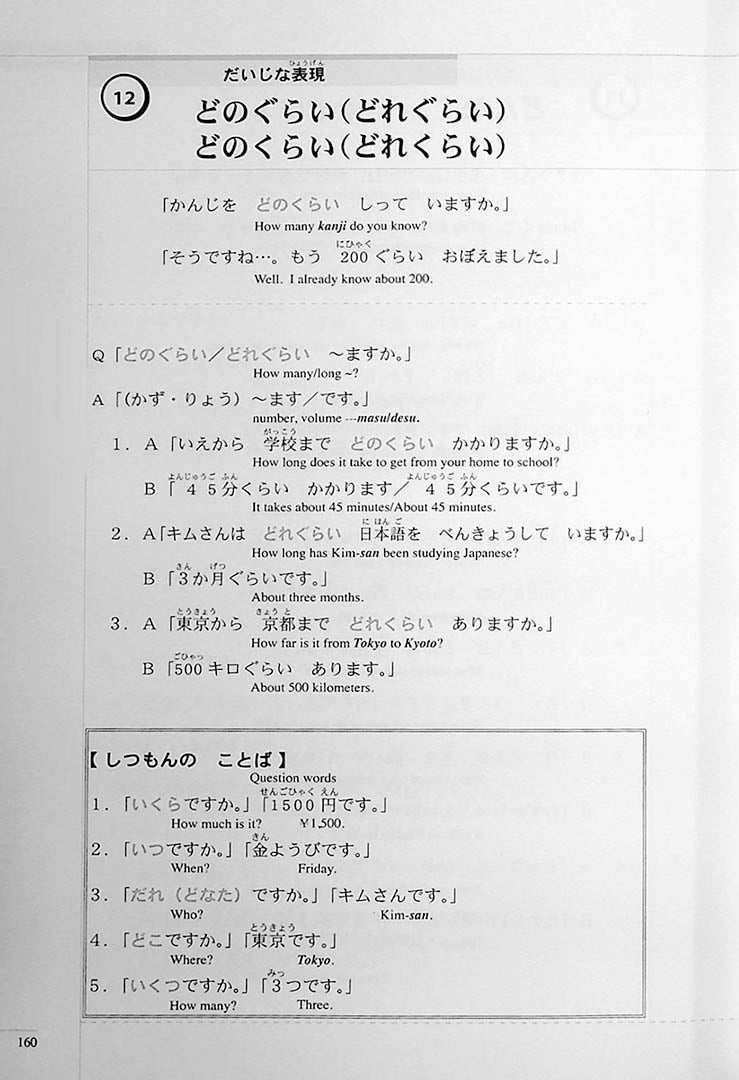 ひょうげん
だいじな表現
12
どのぐらい（どれぐらい）
どのくらい（どれくらい）
「かんじを　どのくらい　しって　いますか。」
How many kanji do you know?
にひゃく
「そうですね…。もう　200ぐらい　おぼえました。」
Well. I already know about 200.
Q「どのぐらい／どれぐらい　～ますか。」
How many/long ~?
A「（かず・りょう）～ます／です。」
number, volume ---masu/desu.
がっこう
1．A「いえから　学校まで　どのくらい　かかりますか。」
How long does it take to get from your home to school?
よんじゅうご ふん　よんじゅうご ふん
B「45分くらい　かかります／45分くらいです。」
It takes about 45 minutes/About 45 minutes.
に ほん ご
2．A「キムさんは　どれぐらい　日本語を　べんきょうして　いますか。」
How long has Kim-san been studying Japanese?
さん　げつ
B「3か月ぐらいです。」
About three months.
とうきょう　きょう と
3．A「東京から　京都まで　どれくらい　ありますか。」
How far is it from Tokyo to Kyoto?
ごひゃっ
B「500キロぐらい　あります。」
About 500 kilometers.
【しつもんの　ことば】
Question words
せんごひゃく えん
1．「いくらですか。」「1500円です。」
How much is it?　¥1,500.
きん
2．「いつですか。」「金ようびです。」
When?　Friday.
3．「だれ（どなた）ですか。」「キムさんです。」
Who?　Kim-san.
とうきょう
4．「どこですか。」「東京です。」
Where?　Tokyo.
みっ
5．「いくつですか。」「3つです。」
How many?　Three.
160